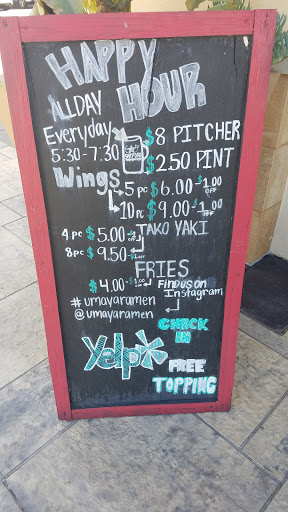 HAPPY
HOUR
ALLDAY
Everyday
5:30-7:30
$8 PITCHER
$2.50 PINT
Wings
5 pc $6.00 -$1.00 OFF
10 pc $9.00 -$1.00 OFF
TAKO YAKI
4 pc $5.00
8 pc $9.50 -$1 OFF
FRIES
$4.00 -$1 OFF
Find us on
Instagram
#umayaramen
@umayaramen
CHECK
IN
Yelp
FREE
TOPPING